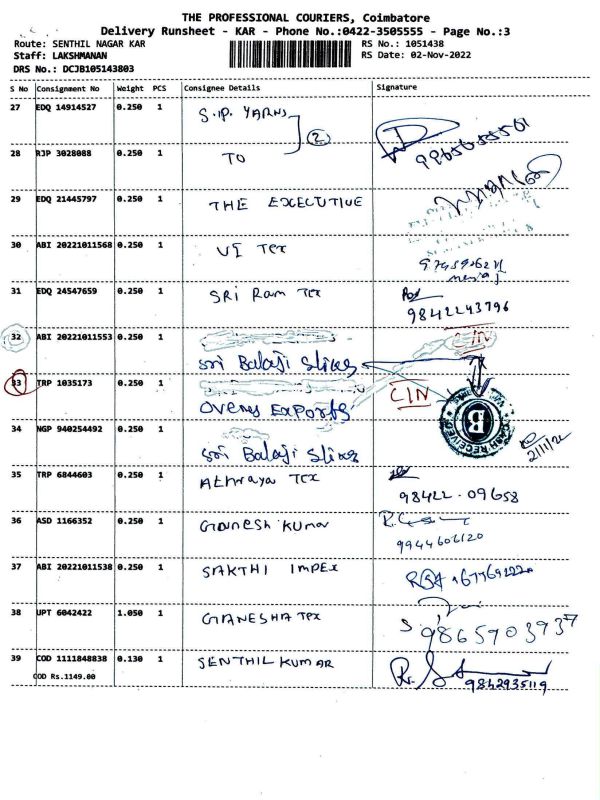 THE PROFESSIONAL COURIERS, Coimbatore
Delivery Runsheet - KAR - Phone No.:0422-3505555 - Page No.:3
Route: SENTHIL NAGAR KAR RS No.: 1051438
Staff: LAKSHMANAN RS Date: 02-Nov-2022
DRS No.: DCJB105143803
S No Consignment No Weight PCS Consignee Details Signature
27 EDQ 14914527 0.250 1 S.P. YARNS
2
28 RJP 3028088 0.250 1 TO 9965655501
29 EDQ 21445797 0.250 1 THE EXECUTIVE
30 ABI 20221011568 0.250 1 VI Tex
31 EDQ 24547659 0.250 1 SRI Ram Tex
9842243796
32 ABI 20221011553 0.250 1 CIN
Sri Balaji
33 TRP 1035173 0.250 1 CIN
Exports
B
34 NGP 940254492 0.250 1
Sri Balaji 2/11/22
35 TRP 6844603 0.250 1 Tex
98422.09658
36 ASD 1166352 0.250 1 GANESH KUMAR
9944606120
37 ABI 20221011538 0.250 1 SAKTHI IMPEX
38 UPT 6042422 1.050 1 GANESHA Tex
9865903937
39 COD 1111848838 0.130 1 SENTHIL KUMAR
COD Rs.1149.00 9842935119